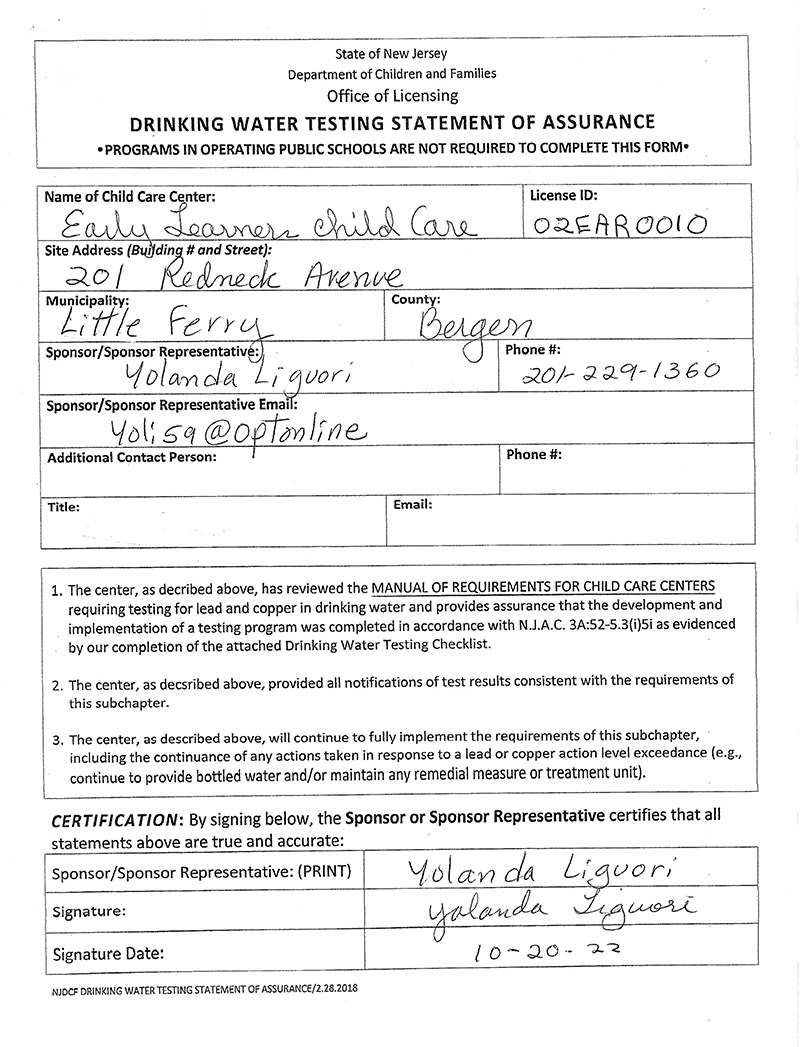 State of New Jersey
Department of Children and Families
Office of Licensing
DRINKING WATER TESTING STATEMENT OF ASSURANCE
•PROGRAMS IN OPERATING PUBLIC SCHOOLS ARE NOT REQUIRED TO COMPLETE THIS FORM•
Name of Child Care Center:
Early Learners Child Care
License ID:
02EAR0010
Site Address (Building # and Street):
201 Redneck Avenue
Municipality:
Little Ferry
County:
Bergen
Sponsor/Sponsor Representative:
Yolanda Liguori
Phone #:
201-229-1360
Sponsor/Sponsor Representative Email:
Yoli59@optonline
Additional Contact Person:
Phone #:
Title:
Email:
1. The center, as decribed above, has reviewed the MANUAL OF REQUIREMENTS FOR CHILD CARE CENTERS
requiring testing for lead and copper in drinking water and provides assurance that the development and
implementation of a testing program was completed in accordance with N.J.A.C. 3A:52-5.3(i)5i as evidenced
by our completion of the attached Drinking Water Testing Checklist.
2. The center, as decsribed above, provided all notifications of test results consistent with the requirements of
this subchapter.
3. The center, as described above, will continue to fully implement the requirements of this subchapter,
including the continuance of any actions taken in response to a lead or copper action level exceedance (e.g.,
continue to provide bottled water and/or maintain any remedial measure or treatment unit).
CERTIFICATION: By signing below, the Sponsor or Sponsor Representative certifies that all
statements above are true and accurate:
Sponsor/Sponsor Representative: (PRINT)
Yolanda Liguori
Signature:
Yolanda Liguori
Signature Date:
10-20-22
NJDCF DRINKING WATER TESTING STATEMENT OF ASSURANCE/2.28.2018